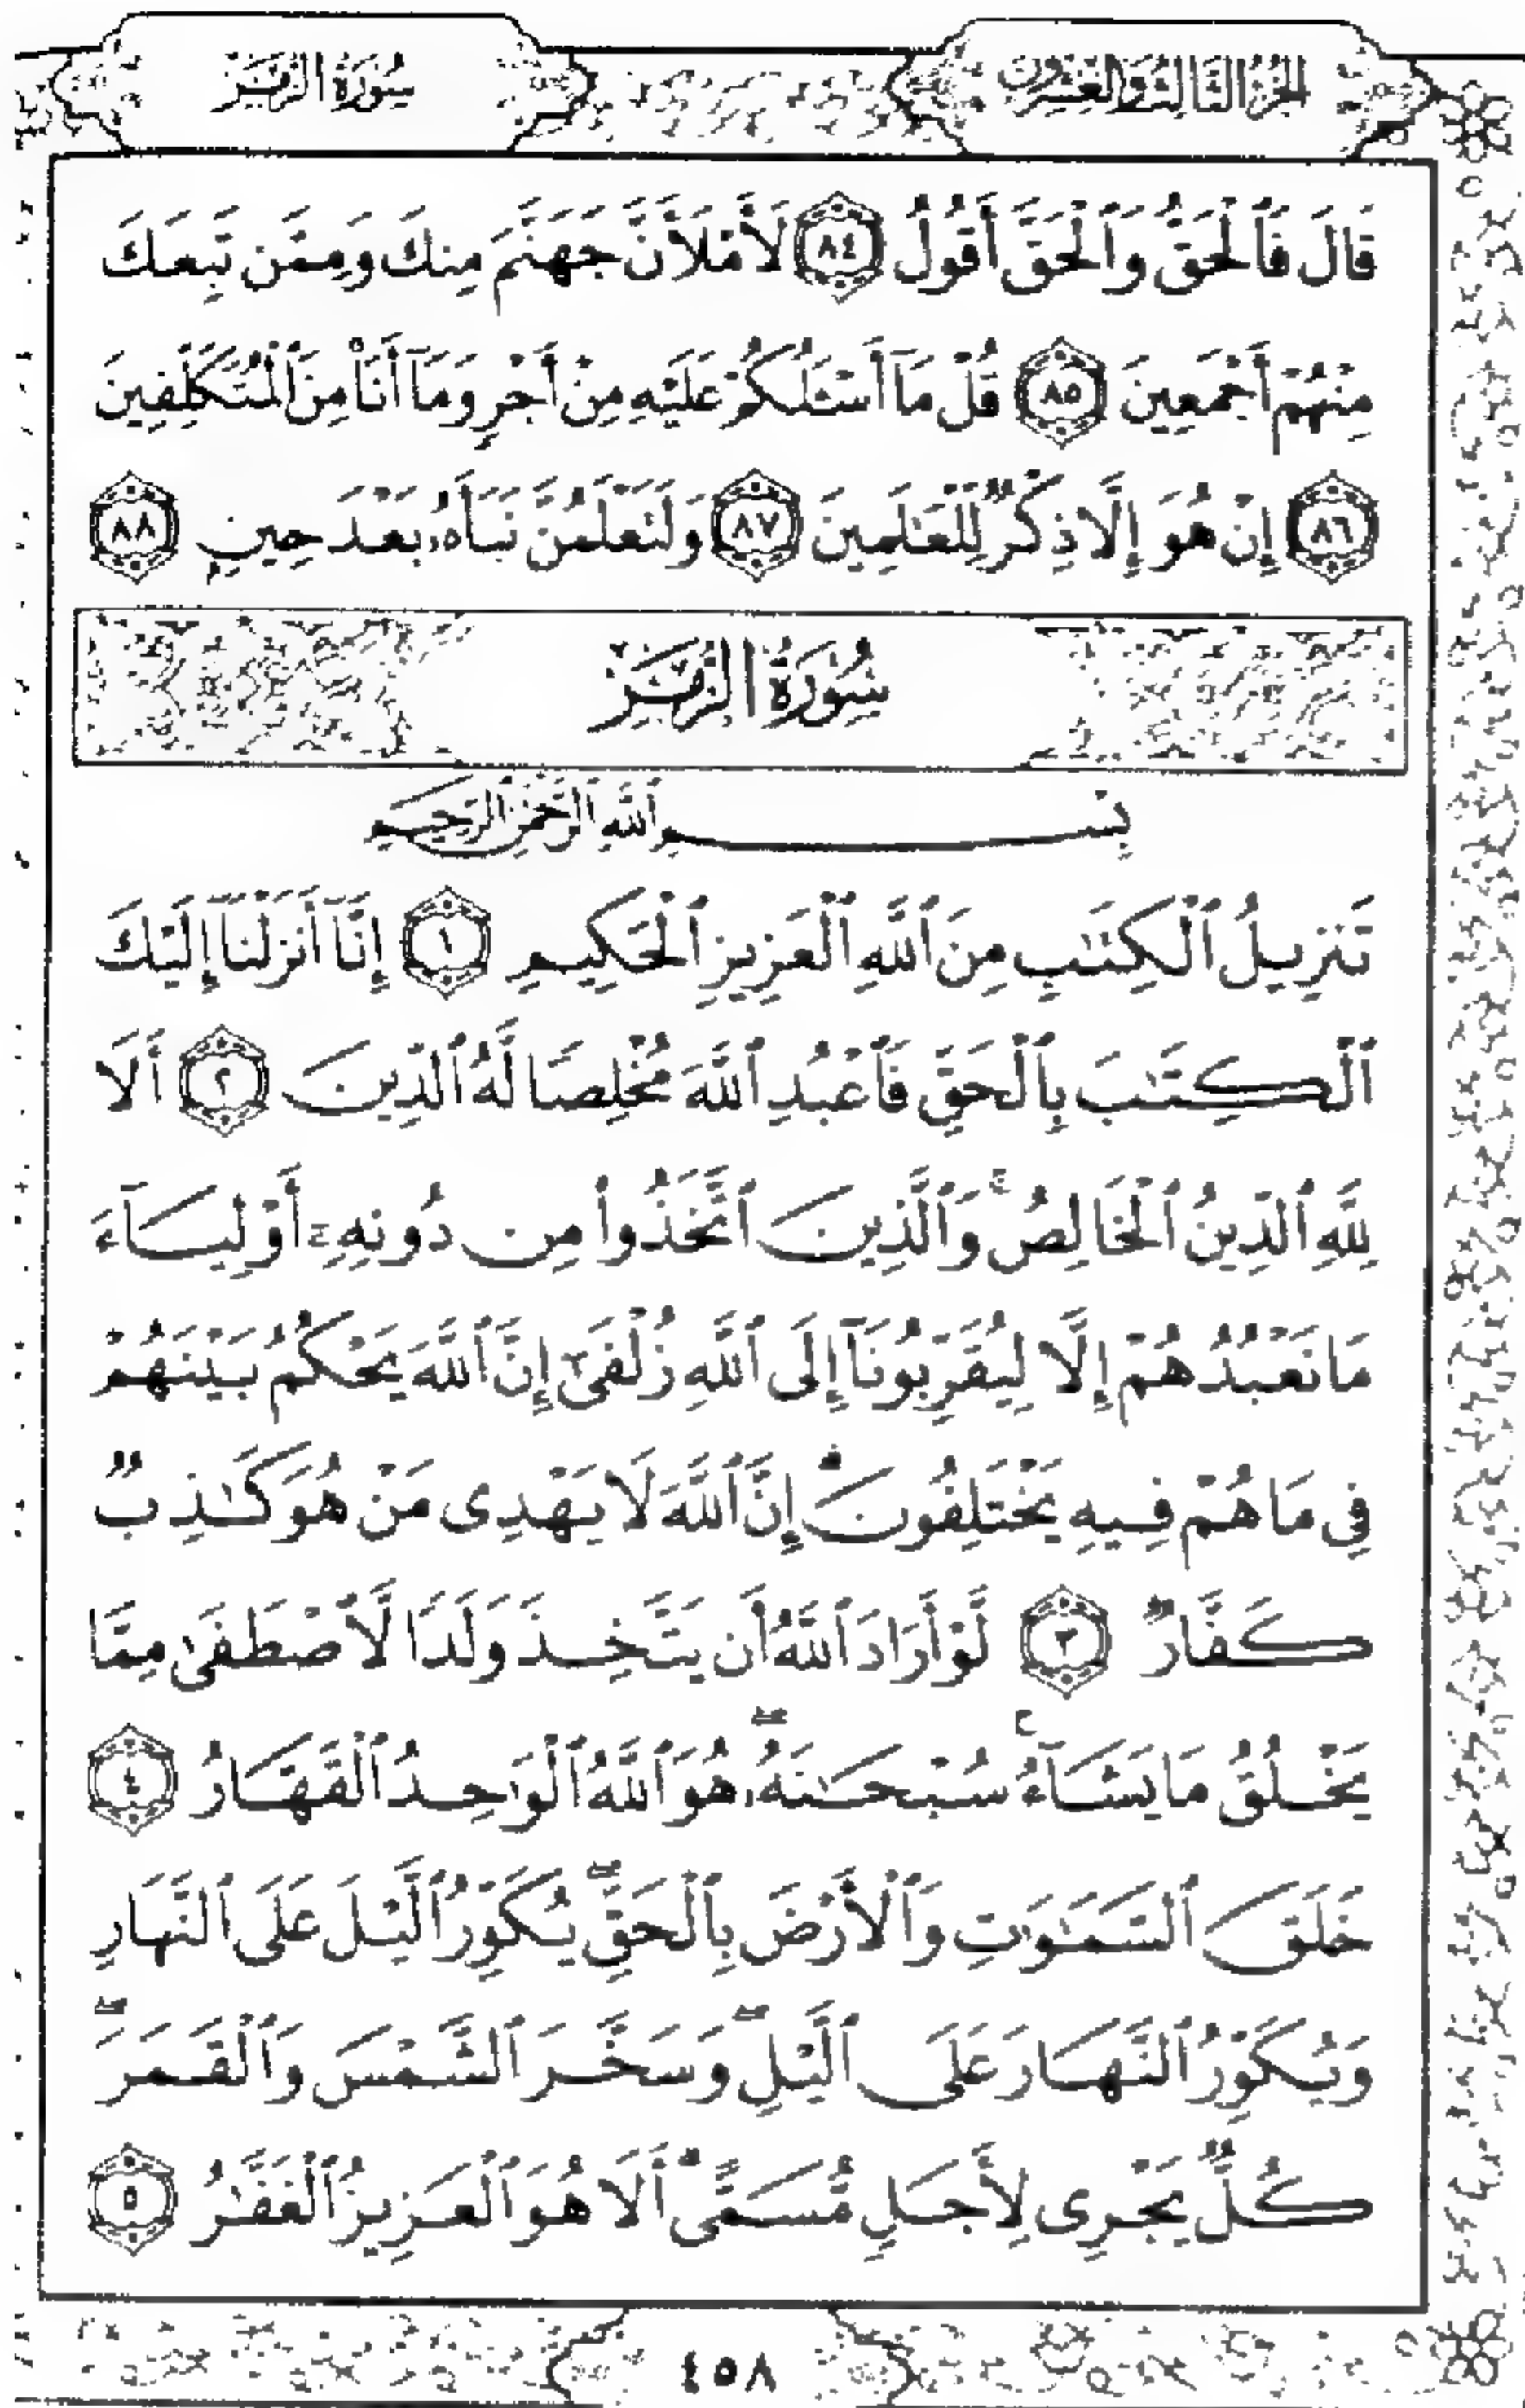 الجزء الثالث والعشرون
سورة الزمر
قَالَ فَٱلْحَقُّ وَٱلْحَقَّ أَقُولُ ٨٤ لَأَمْلَأَنَّ جَهَنَّمَ مِنكَ وَمِمَّن تَبِعَكَ
مِنْهُمْ أَجْمَعِينَ ٨٥ قُلْ مَآ أَسْـَٔلُكُمْ عَلَيْهِ مِنْ أَجْرٍ وَمَآ أَنَا۠ مِنَ ٱلْمُتَكَلِّفِينَ
٨٦ إِنْ هُوَ إِلَّا ذِكْرٌ لِّلْعَٰلَمِينَ ٨٧ وَلَتَعْلَمُنَّ نَبَأَهُۥ بَعْدَ حِينٍۭ ٨٨
سُورَةُ الزُّمَرِ
بِسْمِ ٱللَّهِ ٱلرَّحْمَٰنِ ٱلرَّحِيمِ
تَنزِيلُ ٱلْكِتَٰبِ مِنَ ٱللَّهِ ٱلْعَزِيزِ ٱلْحَكِيمِ ١ إِنَّآ أَنزَلْنَآ إِلَيْكَ
ٱلْكِتَٰبَ بِٱلْحَقِّ فَٱعْبُدِ ٱللَّهَ مُخْلِصًا لَّهُ ٱلدِّينَ ٢ أَلَا
لِلَّهِ ٱلدِّينُ ٱلْخَالِصُ ۚ وَٱلَّذِينَ ٱتَّخَذُوا۟ مِن دُونِهِۦٓ أَوْلِيَآءَ
مَا نَعْبُدُهُمْ إِلَّا لِيُقَرِّبُونَآ إِلَى ٱللَّهِ زُلْفَىٰٓ إِنَّ ٱللَّهَ يَحْكُمُ بَيْنَهُمْ
فِى مَا هُمْ فِيهِ يَخْتَلِفُونَ ۗ إِنَّ ٱللَّهَ لَا يَهْدِى مَنْ هُوَ كَٰذِبٌ
كَفَّارٌ ٣ لَّوْ أَرَادَ ٱللَّهُ أَن يَتَّخِذَ وَلَدًا لَّٱصْطَفَىٰ مِمَّا
يَخْلُقُ مَا يَشَآءُ ۚ سُبْحَٰنَهُۥ ۖ هُوَ ٱللَّهُ ٱلْوَٰحِدُ ٱلْقَهَّارُ ٤
خَلَقَ ٱلسَّمَٰوَٰتِ وَٱلْأَرْضَ بِٱلْحَقِّ ۖ يُكَوِّرُ ٱلَّيْلَ عَلَى ٱلنَّهَارِ
وَيُكَوِّرُ ٱلنَّهَارَ عَلَى ٱلَّيْلِ ۖ وَسَخَّرَ ٱلشَّمْسَ وَٱلْقَمَرَ ۖ
كُلٌّ يَجْرِى لِأَجَلٍ مُّسَمًّى ۗ أَلَا هُوَ ٱلْعَزِيزُ ٱلْغَفَّٰرُ ٥
٤٥٨